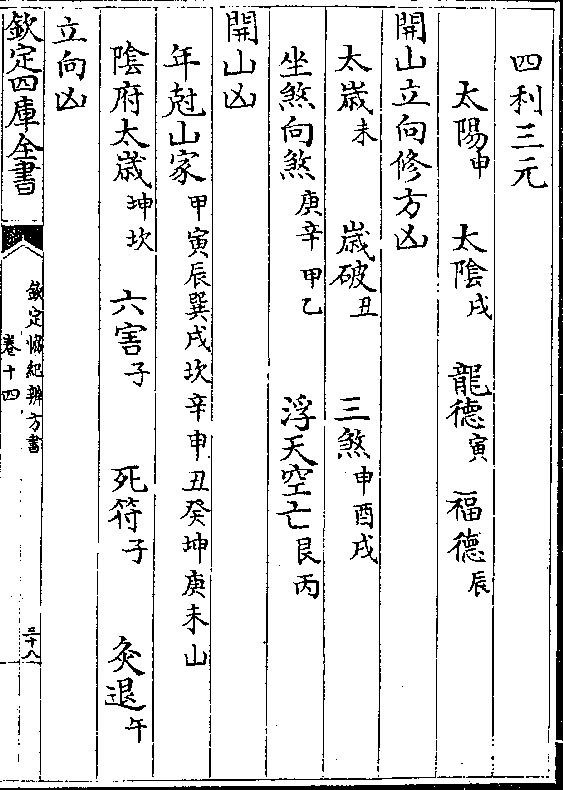 四利三元
太陽申 太陰戌 龍德寅 福德辰
開山立向修方凶
太歲未 歲破丑 三煞申酉戌
坐煞向煞庚辛甲乙 浮天空亡艮丙
開山凶
年尅山家甲寅辰巽戌坎辛申丑癸坤庚未山
陰府太歲坤坎 六害子 死符子 灸退午
立向凶
欽定四庫全書
欽定協紀辨方書
卷十四
三十八